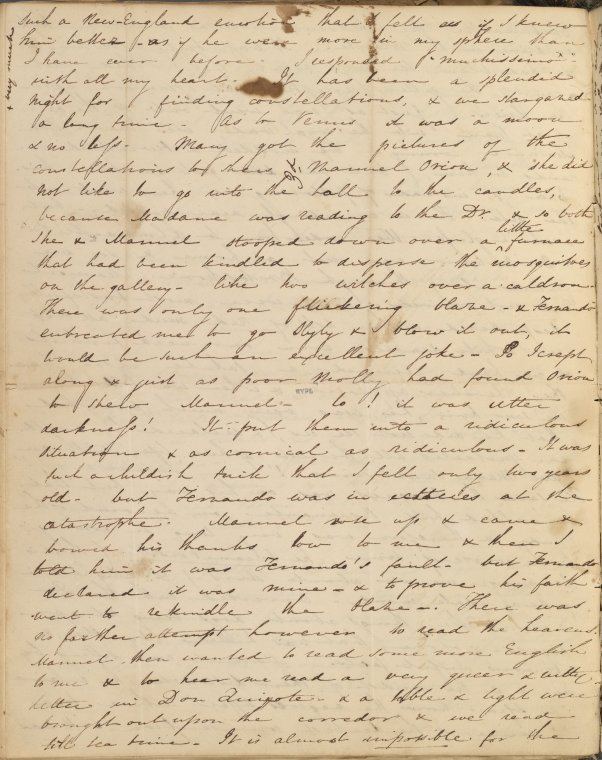 such a New-England emotion that I felt as if I knew
him better - as if he were more in my sphere than
I have ever before. I responded "muchissimo"
& very much
with all my heart. It has been a splendid
night for finding constellations, & we stargazed
a long time. As to Venus it was a moon
& no less. Mary got the pictures of the
constellations to shew Manuel Orion, & she did
not like to go into the hall to the candles,
because Madame was reading to the Dr. & so both
she & Manuel stooped down over a little furnace
that had been kindled to disperse the mosquitoes
on the gallery - like two witches over a caldron.
There was only one flickering blaze - & Fernando
entreated me to go slyly & blow it out, it
would be such an excellent joke - So I crept
along & just as poor Molly had found Orion
to shew Manuel - lo! it was utter
darkness! It put them into a ridiculous
situation & as comical as ridiculous - It was
such a childish trick that I felt only two years
old - but Fernando was in extacies at the
catastrophe. Manuel rose up & came &
bowed his thanks low to me & then I
told him it was Fernando's fault - but Fernando
declared it was mine - & to prove his faith
went to rekindle the blaze -. There was
no farther attempt however to read the heavens.
Manuel then wanted to read some more English
to me & to hear me read a very queer & witty
letter in Don Quixote - & a table & light were
brought out upon the corredor & we read
till tea time - It is almost impossible for the